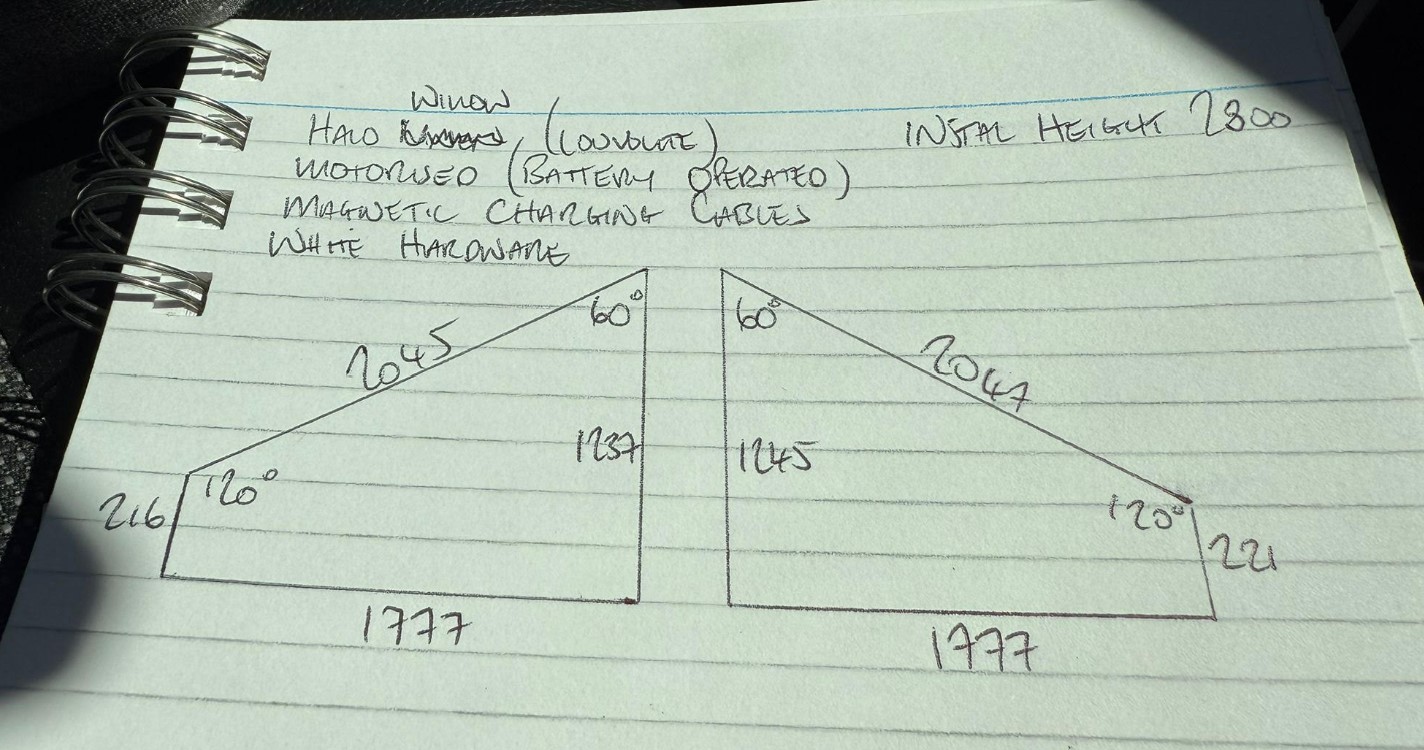 WILLOW
HALO (LOUVOLITE)
INSTAL HEIGHT 2800
MOTORISED (BATTERY OPERATED)
MAGNETIC CHARGING CABLES
WHITE HARDWARE
60°
60°
2045
2047
1237
1245
120°
120°
216
221
1777
1777